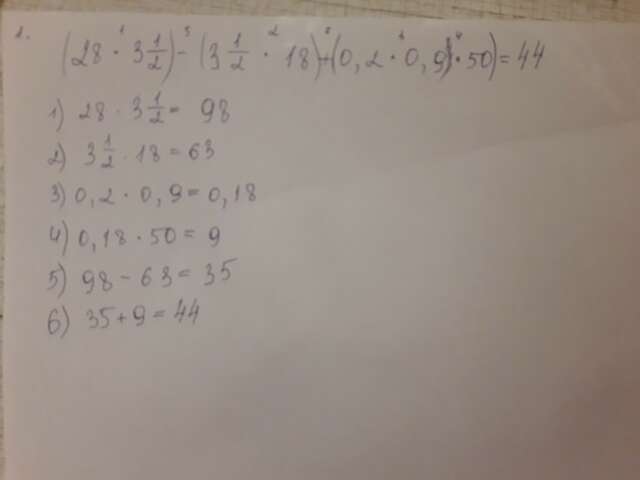 1.
(28 · 3 1/2) - (3 1/2 · 18) + (0,2 · 0,9) · 50) = 44
1) 28 · 3 1/2 = 98
2) 3 1/2 · 18 = 63
3) 0,2 · 0,9 = 0,18
4) 0,18 · 50 = 9
5) 98 - 63 = 35
6) 35 + 9 = 44